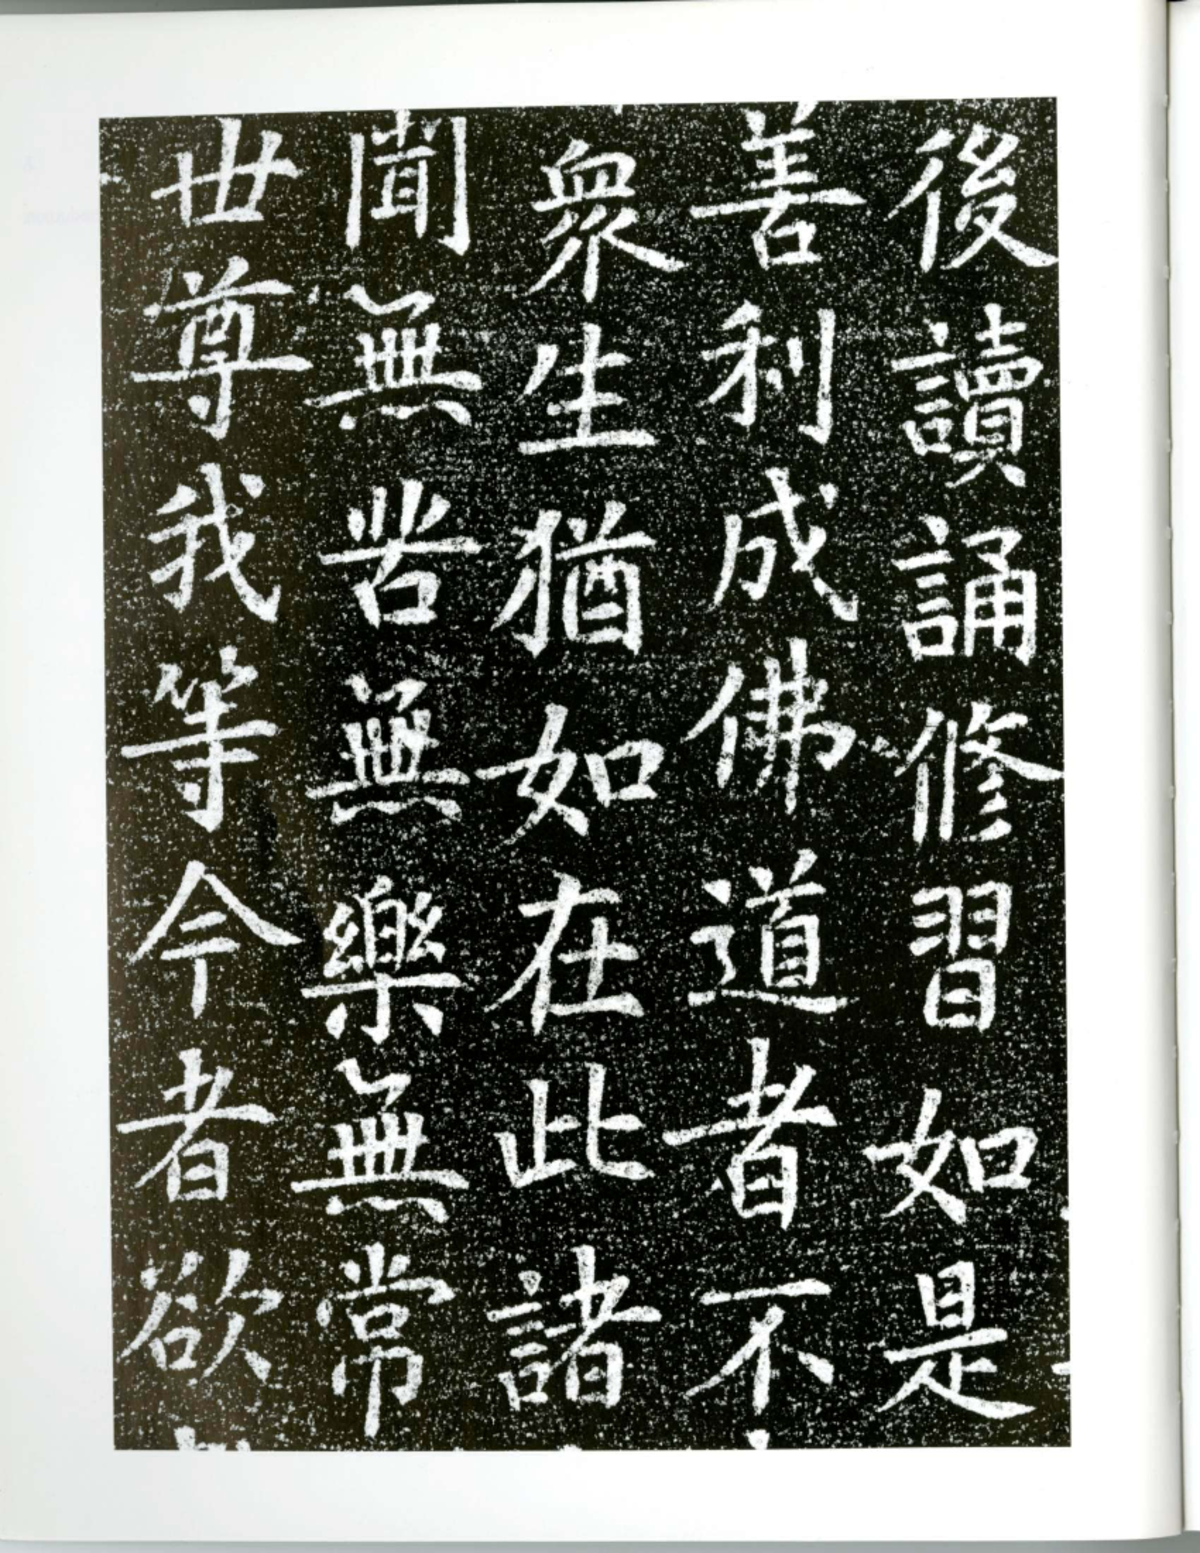 後讀誦修習如是
善利成佛道者不
衆生猶如在此諸
聞無苦無樂無常
世尊我等今者欲